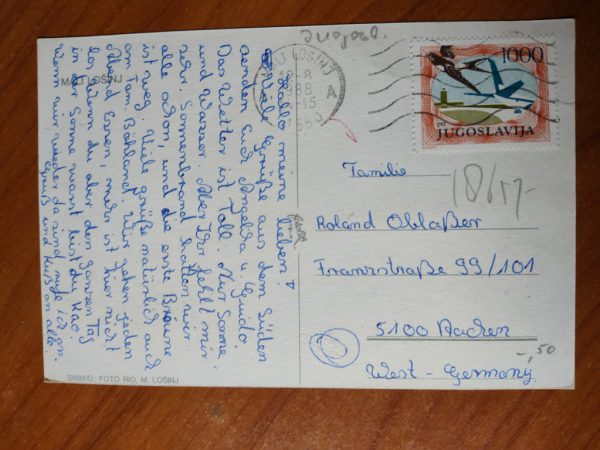 Hallo meine lieben!
Viele Grüße aus dem Süden
senden Euch Angelika u. Guido.
Das Wetter ist Toll. Nur Sonne
und Wasser. Aber Ihr fehlt mir
sehr. Sonnenbrand hatten wir
alle schon, und die erste Bräune
ist weg. Viele grüße natürlich auch
am Fam. Böhland. Wir gehen jeden
Abend Essen, mehr ist hier nicht
los. Wenn du aber den ganzen Tag
in der Sonne warst bist du Kao.
Wenn wir wieder da sind rufe ich an.
Gruß und Kuß an alle.
MALI LOŠINJ
SNIMIO: FOTO RIO, M. LOŠINJ
Jugosl.
MALI LOŠINJ
A
1000
JUGOSLAVIJA
18/17-
Familie
Roland Oblaßer
Franzstraße 99/101
5100 Aachen
-,50
West - Germany